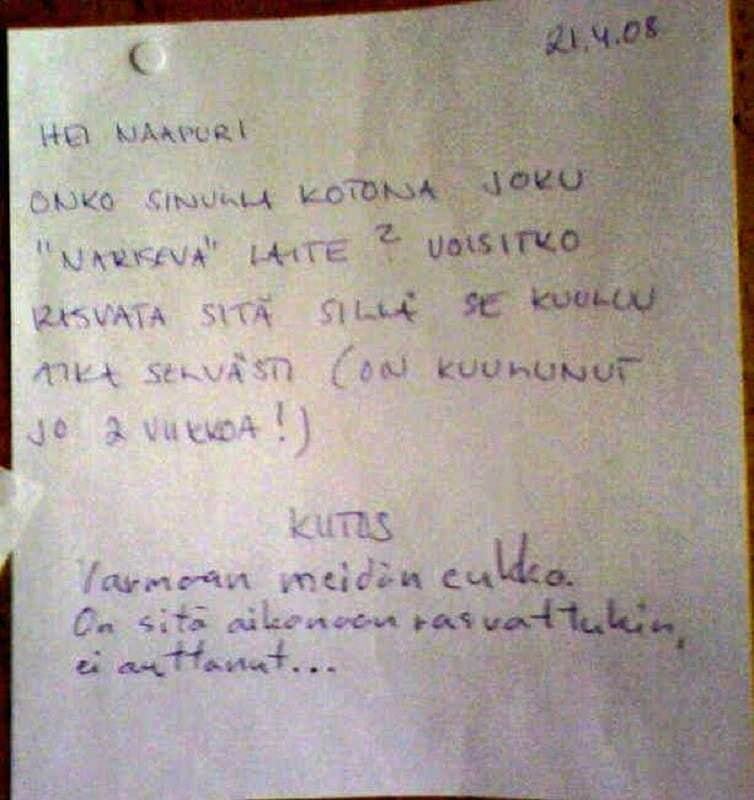 21.4.08
HEI NAAPURI
ONKO SINULLA KOTONA JOKU
"NARISEVA" LAITE ? VOISITKO
RASVATA SITÄ SILLÄ SE KUULUU
AIKA SELVÄSTI (ON KUULUNUT
JO 2 VIIKKOA!)
KIITOS
Varmaan meidän eukko.
On sitä aikanaan rasvattukin,
ei auttanut...